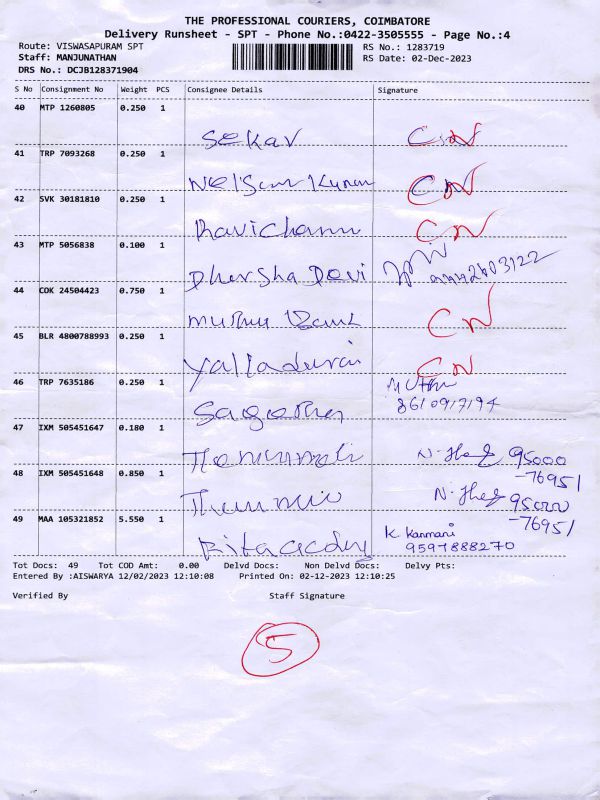 THE PROFESSIONAL COURIERS, COIMBATORE
Delivery Runsheet - SPT - Phone No.:0422-3505555 - Page No.:4
Route: VISWASAPURAM SPT RS No.: 1283719
Staff: MANJUNATHAN RS Date: 02-Dec-2023
DRS No.: DCJB128371904
S No Consignment No Weight PCS Consignee Details Signature
40 MTP 1260805 0.250 1
Sekar CN
41 TRP 7093268 0.250 1
Nelson Kumar CN
42 SVK 30181810 0.250 1
Ravichann CN
43 MTP 5056838 0.100 1
Dharsha Devi
44 CDK 24504423 0.750 1
CN
45 BLR 4800788993 0.250 1
Yalladurai CN
46 TRP 7635186 0.250 1
47 IXM 505451647 0.180 1
95000
-76951
48 IXM 505451648 0.850 1
-76951
49 MAA 105321852 5.550 1
K. Kanmani
9597888270
Tot Docs: 49 Tot COD Amt: 0.00 Delvd Docs: Non Delvd Docs: Delvy Pts:
Entered By :AISWARYA 12/02/2023 12:10:08 Printed On: 02-12-2023 12:10:25
Verified By Staff Signature
5